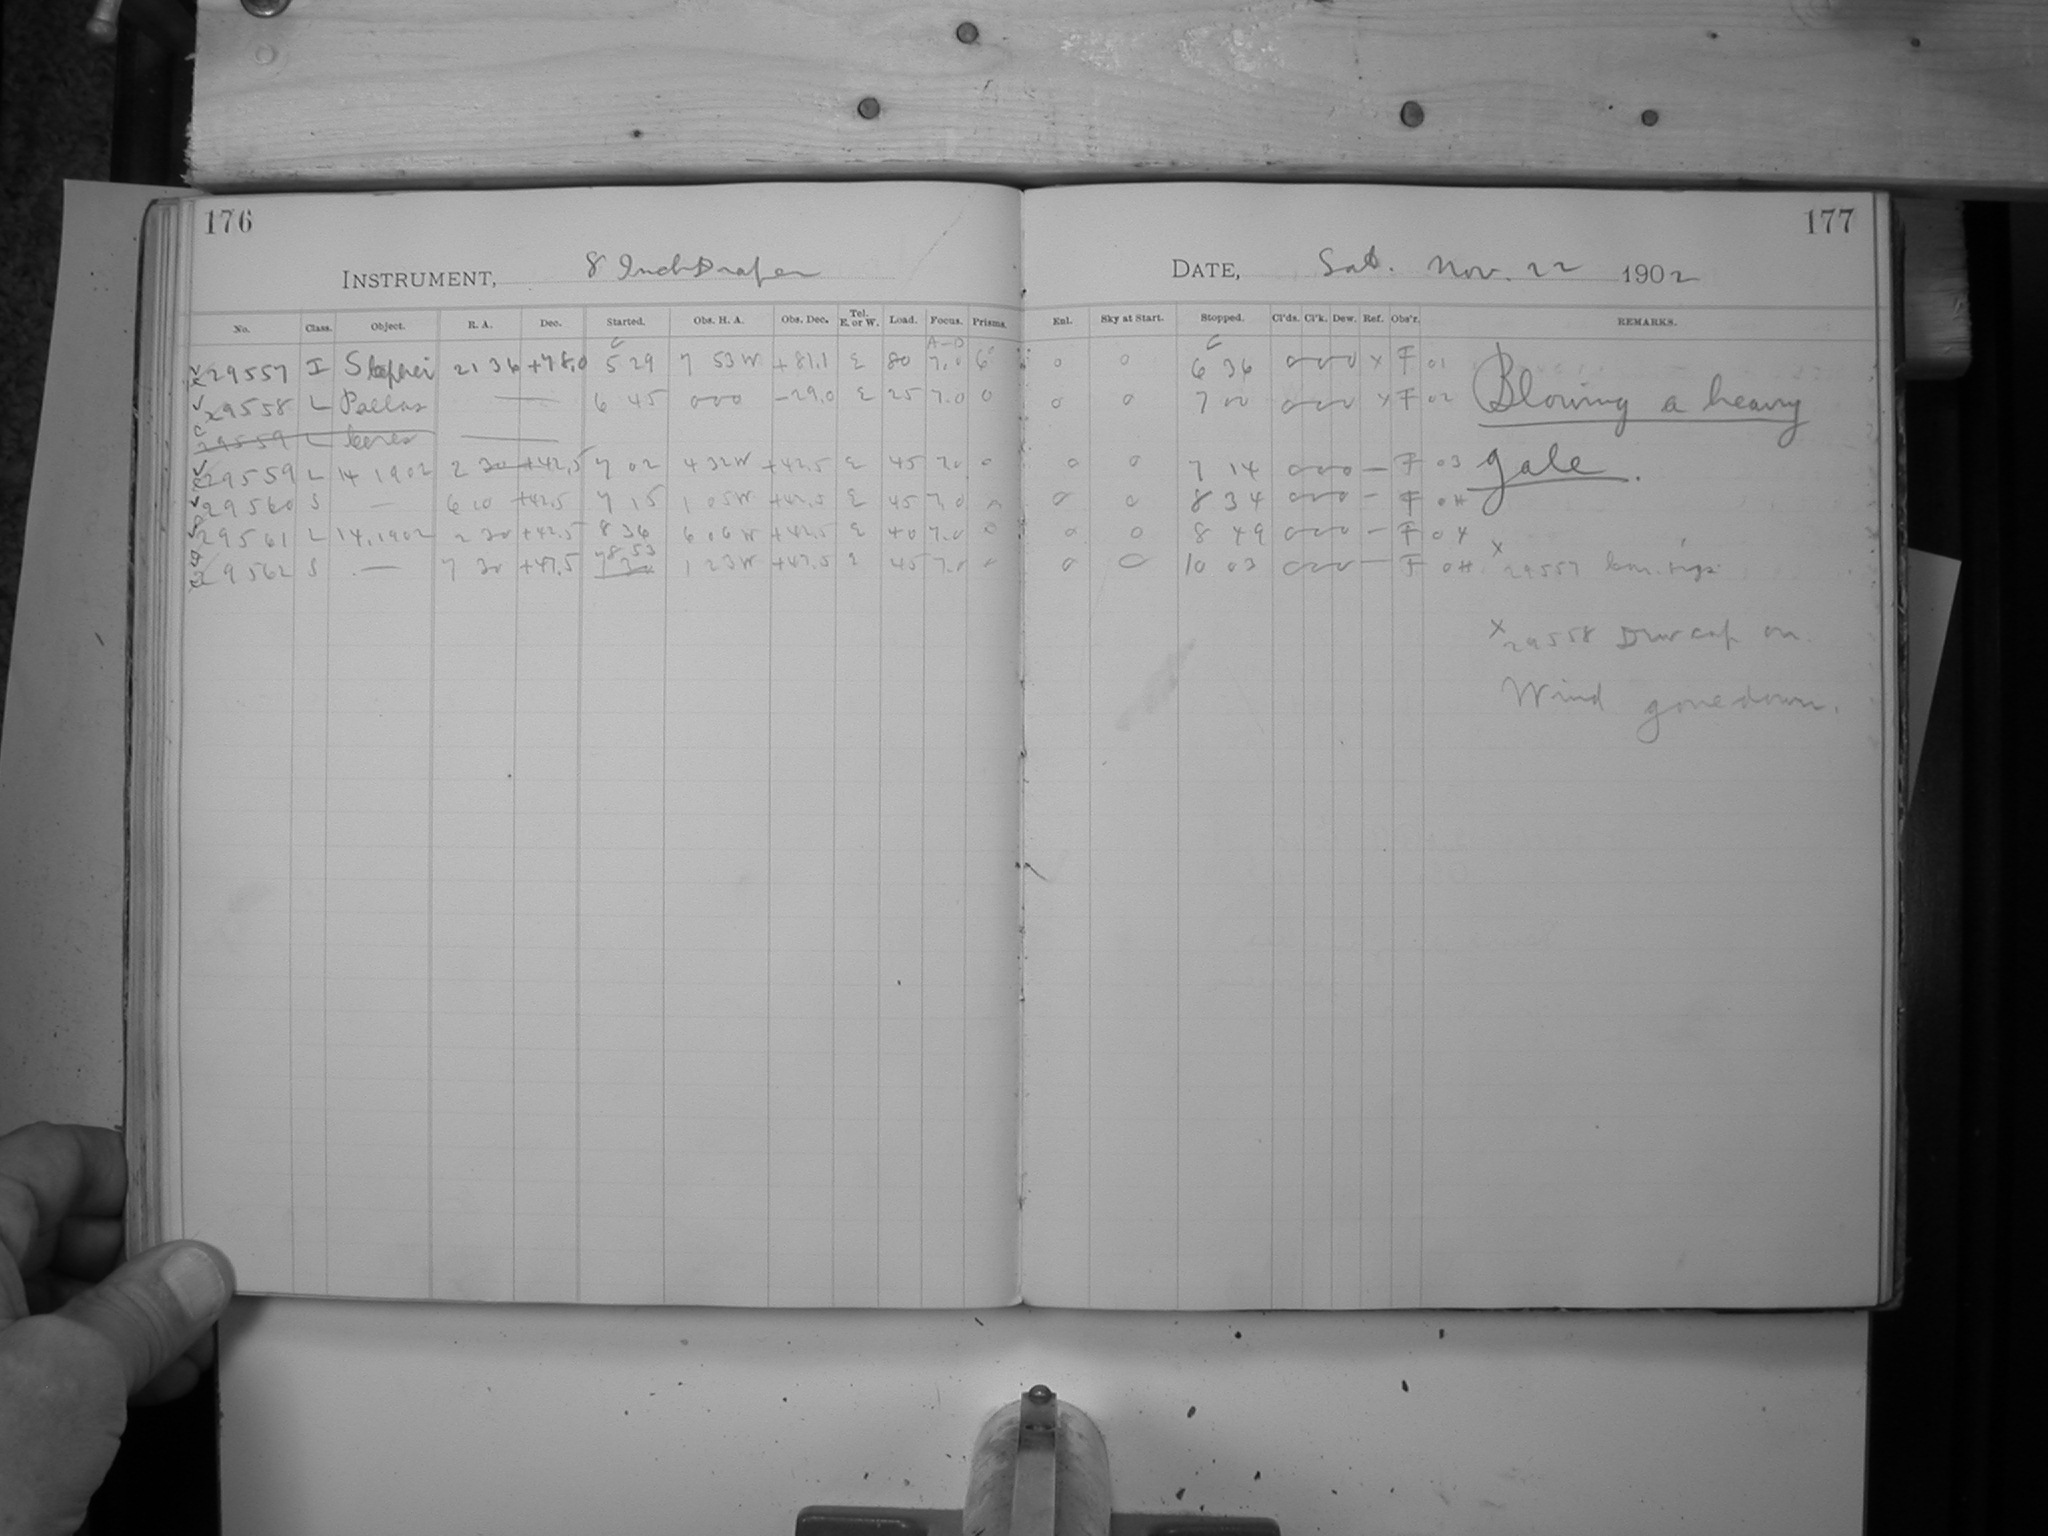 176
INSTRUMENT, 8 Inch Draper
No. Class. Object. R. A. Dec. Started. Obs. H. A. Obs. Dec. Tel. E. or W. Load. Focus. Prisms.
29557 I 21 36 +78.0 5 29 7 53 W +81.1 E 80 7.0 6
29558 L Pallas — 6 45 000 -29.0 E 25 7.0 0
29559 L Ceres —
29559 L 14 1902 2 30 +42.5 7 02 4 32 W +42.5 E 45 7.0 0
29560 S — 6 10 +42.5 7 15 1 05 W +42.5 E 45 7.0 0
29561 L 14.1902 2 30 +42.5 8 36 6 06 W +42.5 E 40 7.0 0
29562 S — 7 30 +47.5 8 53 1 23 W +47.5 E 45 7.0 0
177
DATE, Sat. Nov. 22 1902
Enl. Sky at Start. Stopped. Cl'ds. Cl'k. Dew. Ref. Obs'r. REMARKS.
0 0 6 36 000 x F 01
0 0 7 00 000 x F 02 Blowing a heavy
0 0 7 14 000 — F 03 gale.
0 0 8 34 000 — F 04
0 0 8 49 000 — F 04
0 0 10 03 000 — F 04
x 29557
x 29558 Dew cap on.
Wind gone down.